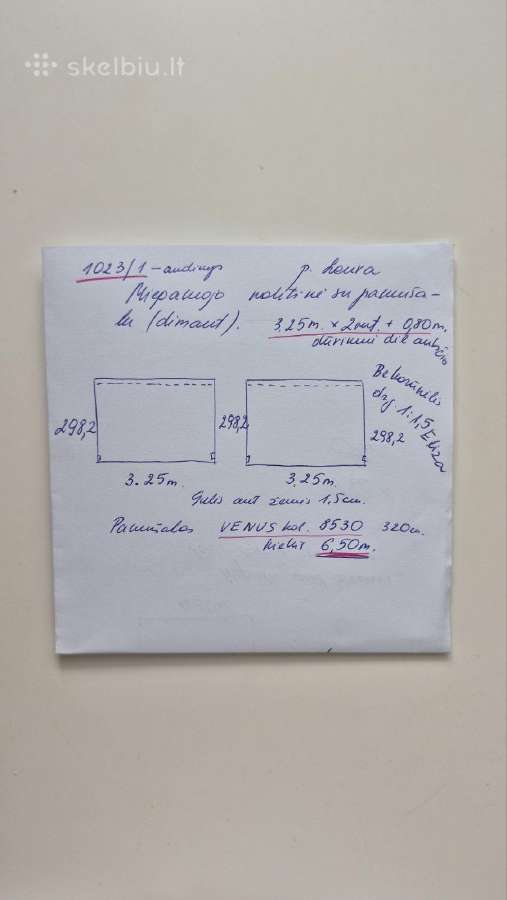 skelbiu.lt
1023/1 - audinys p. Laura
Miegamojo naktinė su pamuša-
lu (dimaut). 3,25m. × 2vnt. + 0,80m.
dūrimui dėl aukščio
298,2 298,2 298,2
3.25m. 3,25m.
drg 1:1,5
Gulis ant žemės 1,5cm.
Pamušalas VENUS kol. 8530 320cm.
kiekis 6,50m.